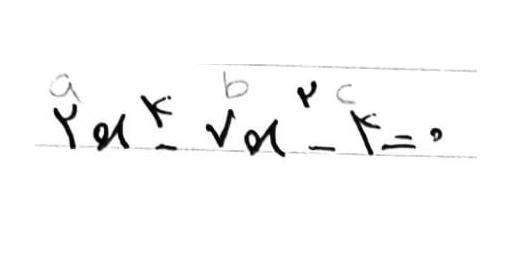 a b c
۲x^۴ - ۷x^۲ - ۴ = ۰